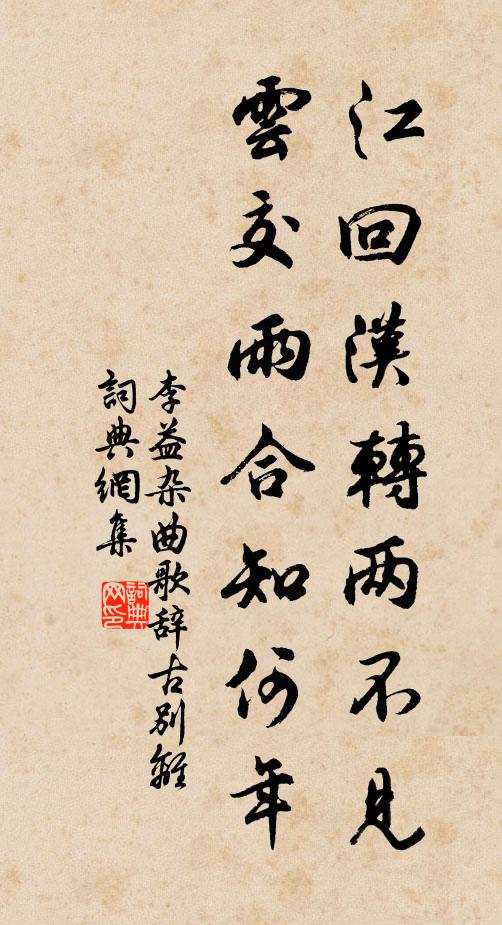 江回漢轉两不見
雲交雨合知何年
李益杂曲歌辞古别離
詞典網集
詞典网印